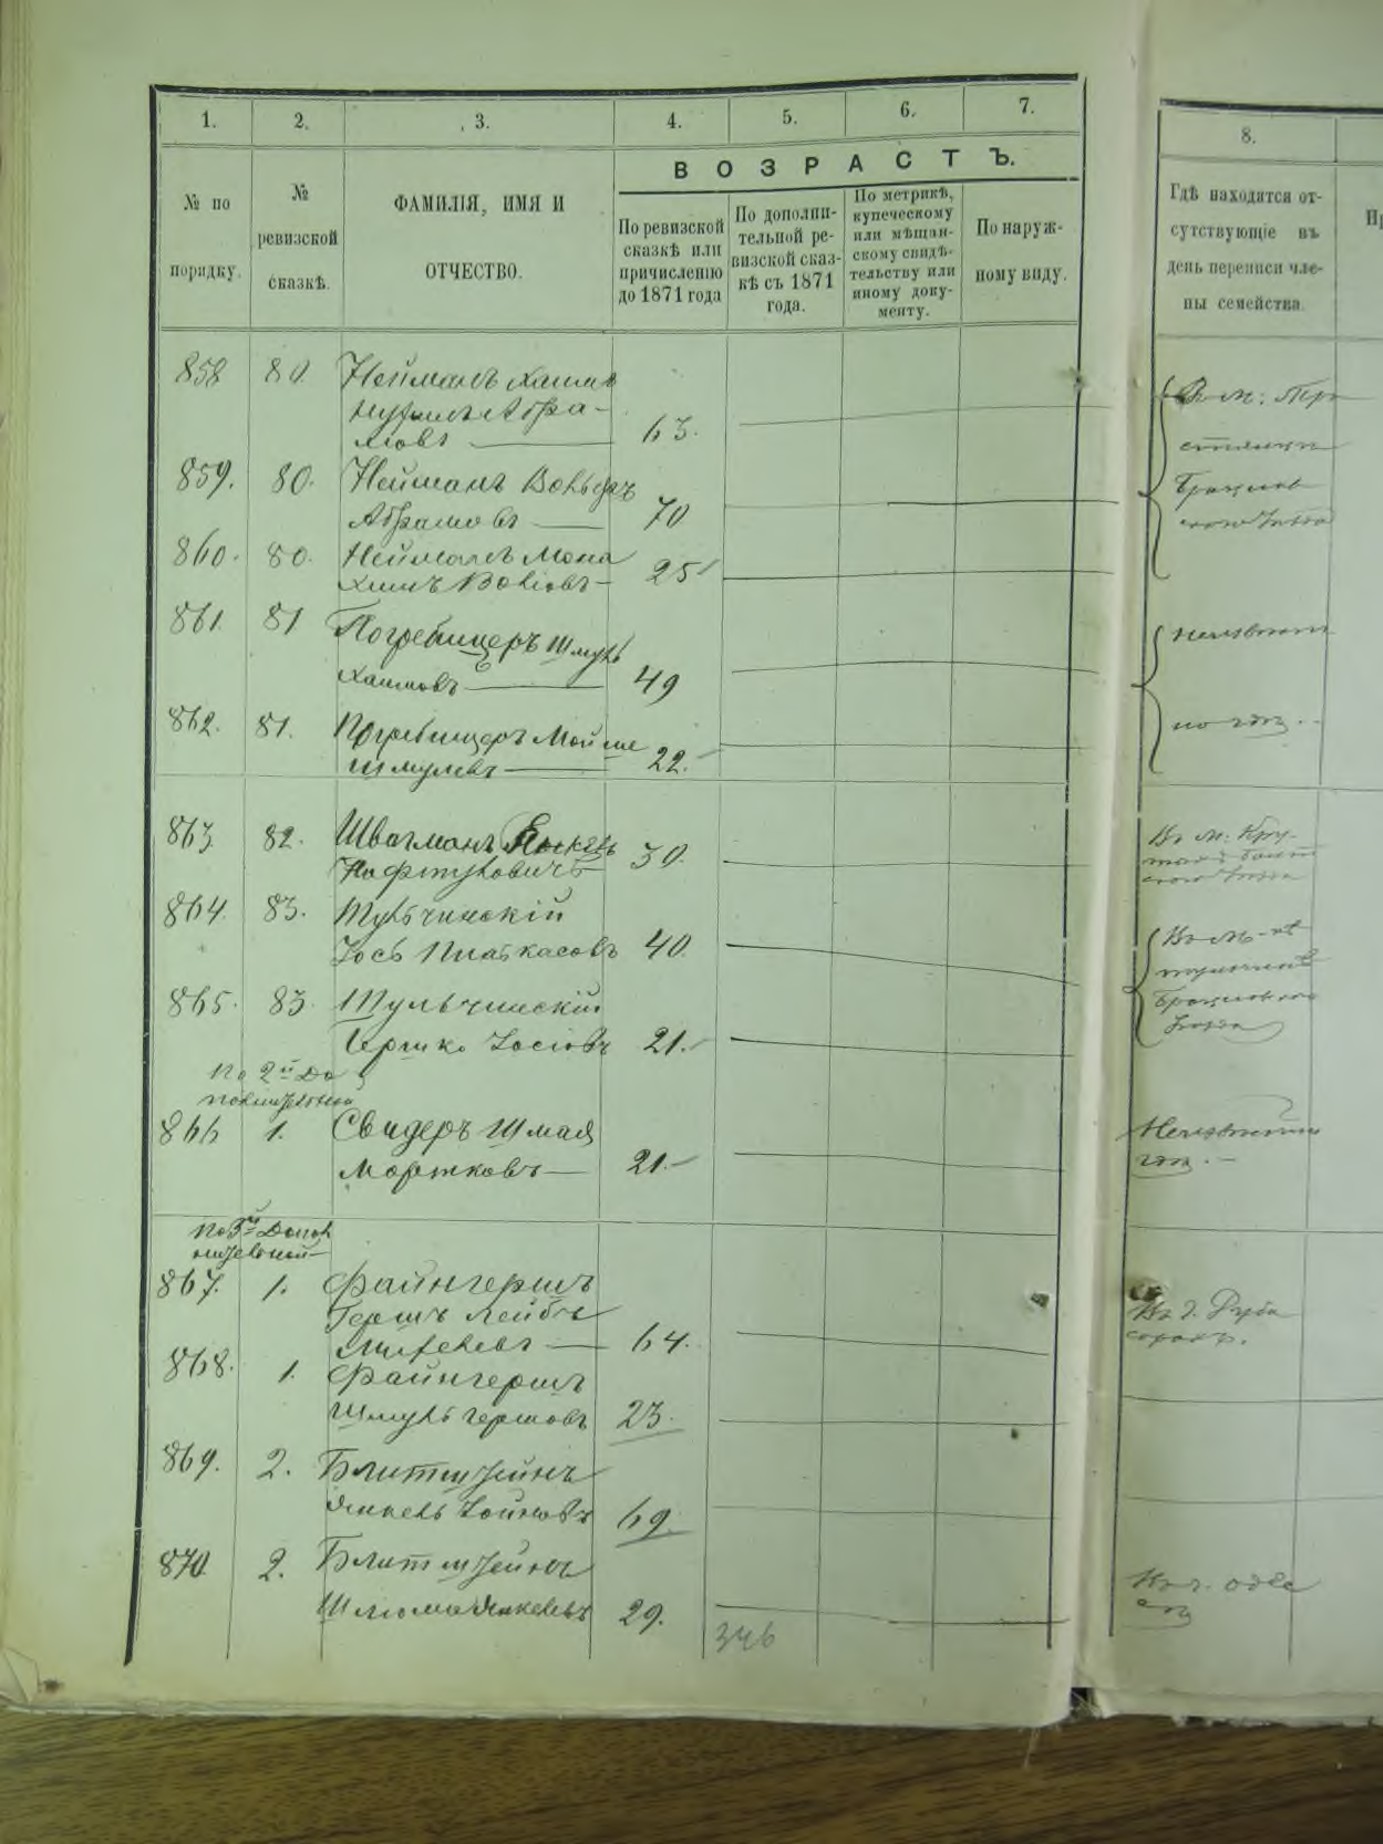 1. 2. 3. 4. 5. 6. 7.
ВОЗРАСТЪ.
№ по
порядку.
№
ревизской
сказкѣ.
ФАМИЛІЯ, ИМЯ И
ОТЧЕСТВО.
По ревизской
сказкѣ или
причисленію
до 1871 года
По дополни-
тельной ре-
визской сказ-
кѣ съ 1871
года.
По метрикѣ,
купеческому
или мѣщан-
скому свидѣ-
тельству или
иному доку-
менту.
По наруж-
ному виду.
858 80. Нейманъ Хаимъ
Абра-
мовъ 63.
859. 80. Нейманъ Вольфъ
Абрамовъ 70
860. 80. Нейманъ Мона
химъ Волковъ 25
861. 81 Погребищеръ Шмуль
Хаимовъ 49
862. 81. Погребищеръ Мойше
Шмулевъ 22.
863. 82. Швагманъ
Нафтуловичъ 30.
864. 83. Тульчинскій
Іось Пинькасовъ 40.
865. 83. Тульчинскій
Гершко Іосіовъ 21.
По 2й До
полнительной
866 1. Свидеръ Шмая
Мортковъ 21.
По 3й Допол
нительной
867. 1. Файнгершъ
Гершъ Лейбъ
64.
868. 1. Файнгершъ
Шмуль Гершовъ 23.
869. 2. Блитштейнъ
Янкель 69.
870. 2. Блитштейнъ
Шлиома Янкелевъ 29.
346
8.
Гдѣ находятся от-
сутствующіе въ
день переписи чле-
ны семейства.
Въ м:
Брацлав
скаго уѣзда
Неизвѣстно
гдѣ
Въ м: Кру-
тыхъ Балт
скаго уѣзда
Въ м-кѣ
Брацлавскаго
уѣзда
Неизвѣстно
гдѣ.
Въ г. Одес
сѣ